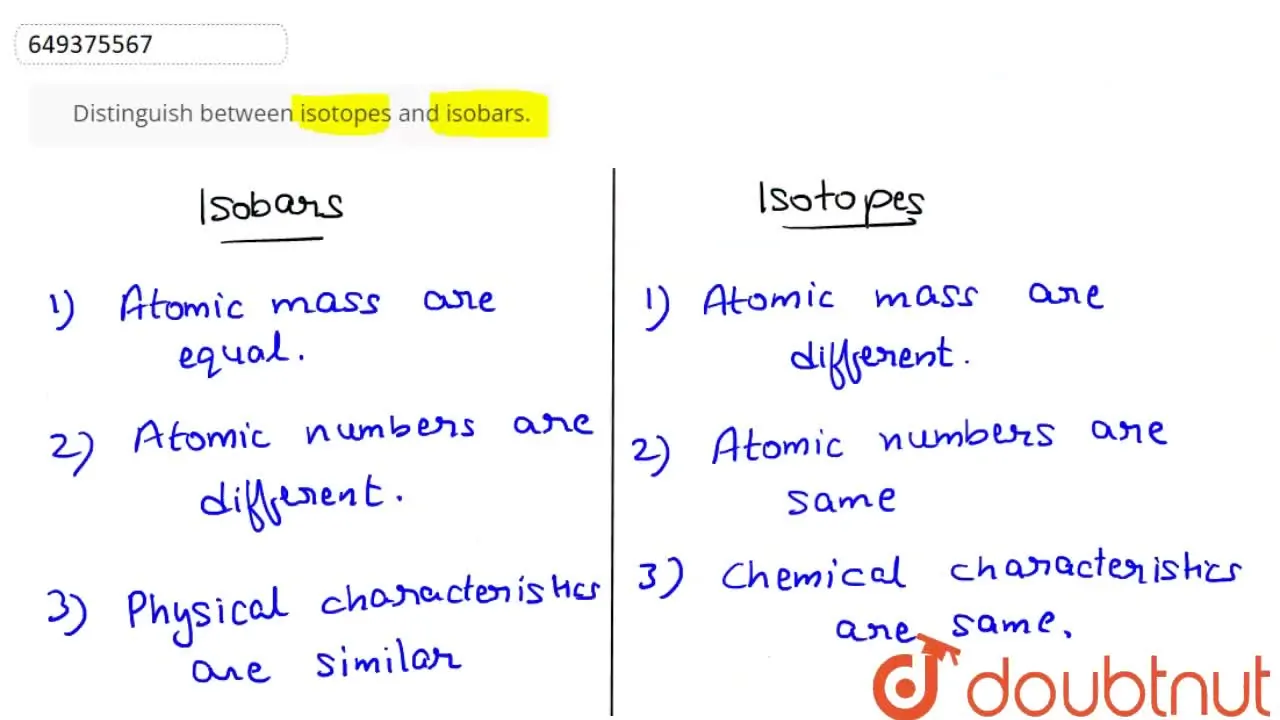 649375567
Distinguish between isotopes and isobars.
Isobars
1) Atomic mass are
equal.
2) Atomic numbers are
different.
3) Physical characteristics
are similar
Isotopes
1) Atomic mass are
different.
2) Atomic numbers are
same
3) Chemical characteristics
are same.
doubtnut